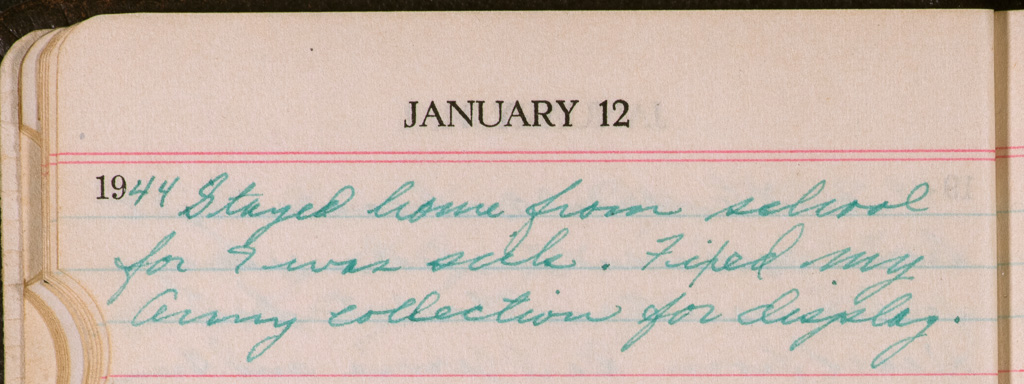 JANUARY 12
1944 Stayed home from school
for I was sick. Fixed my
Army collection for display.